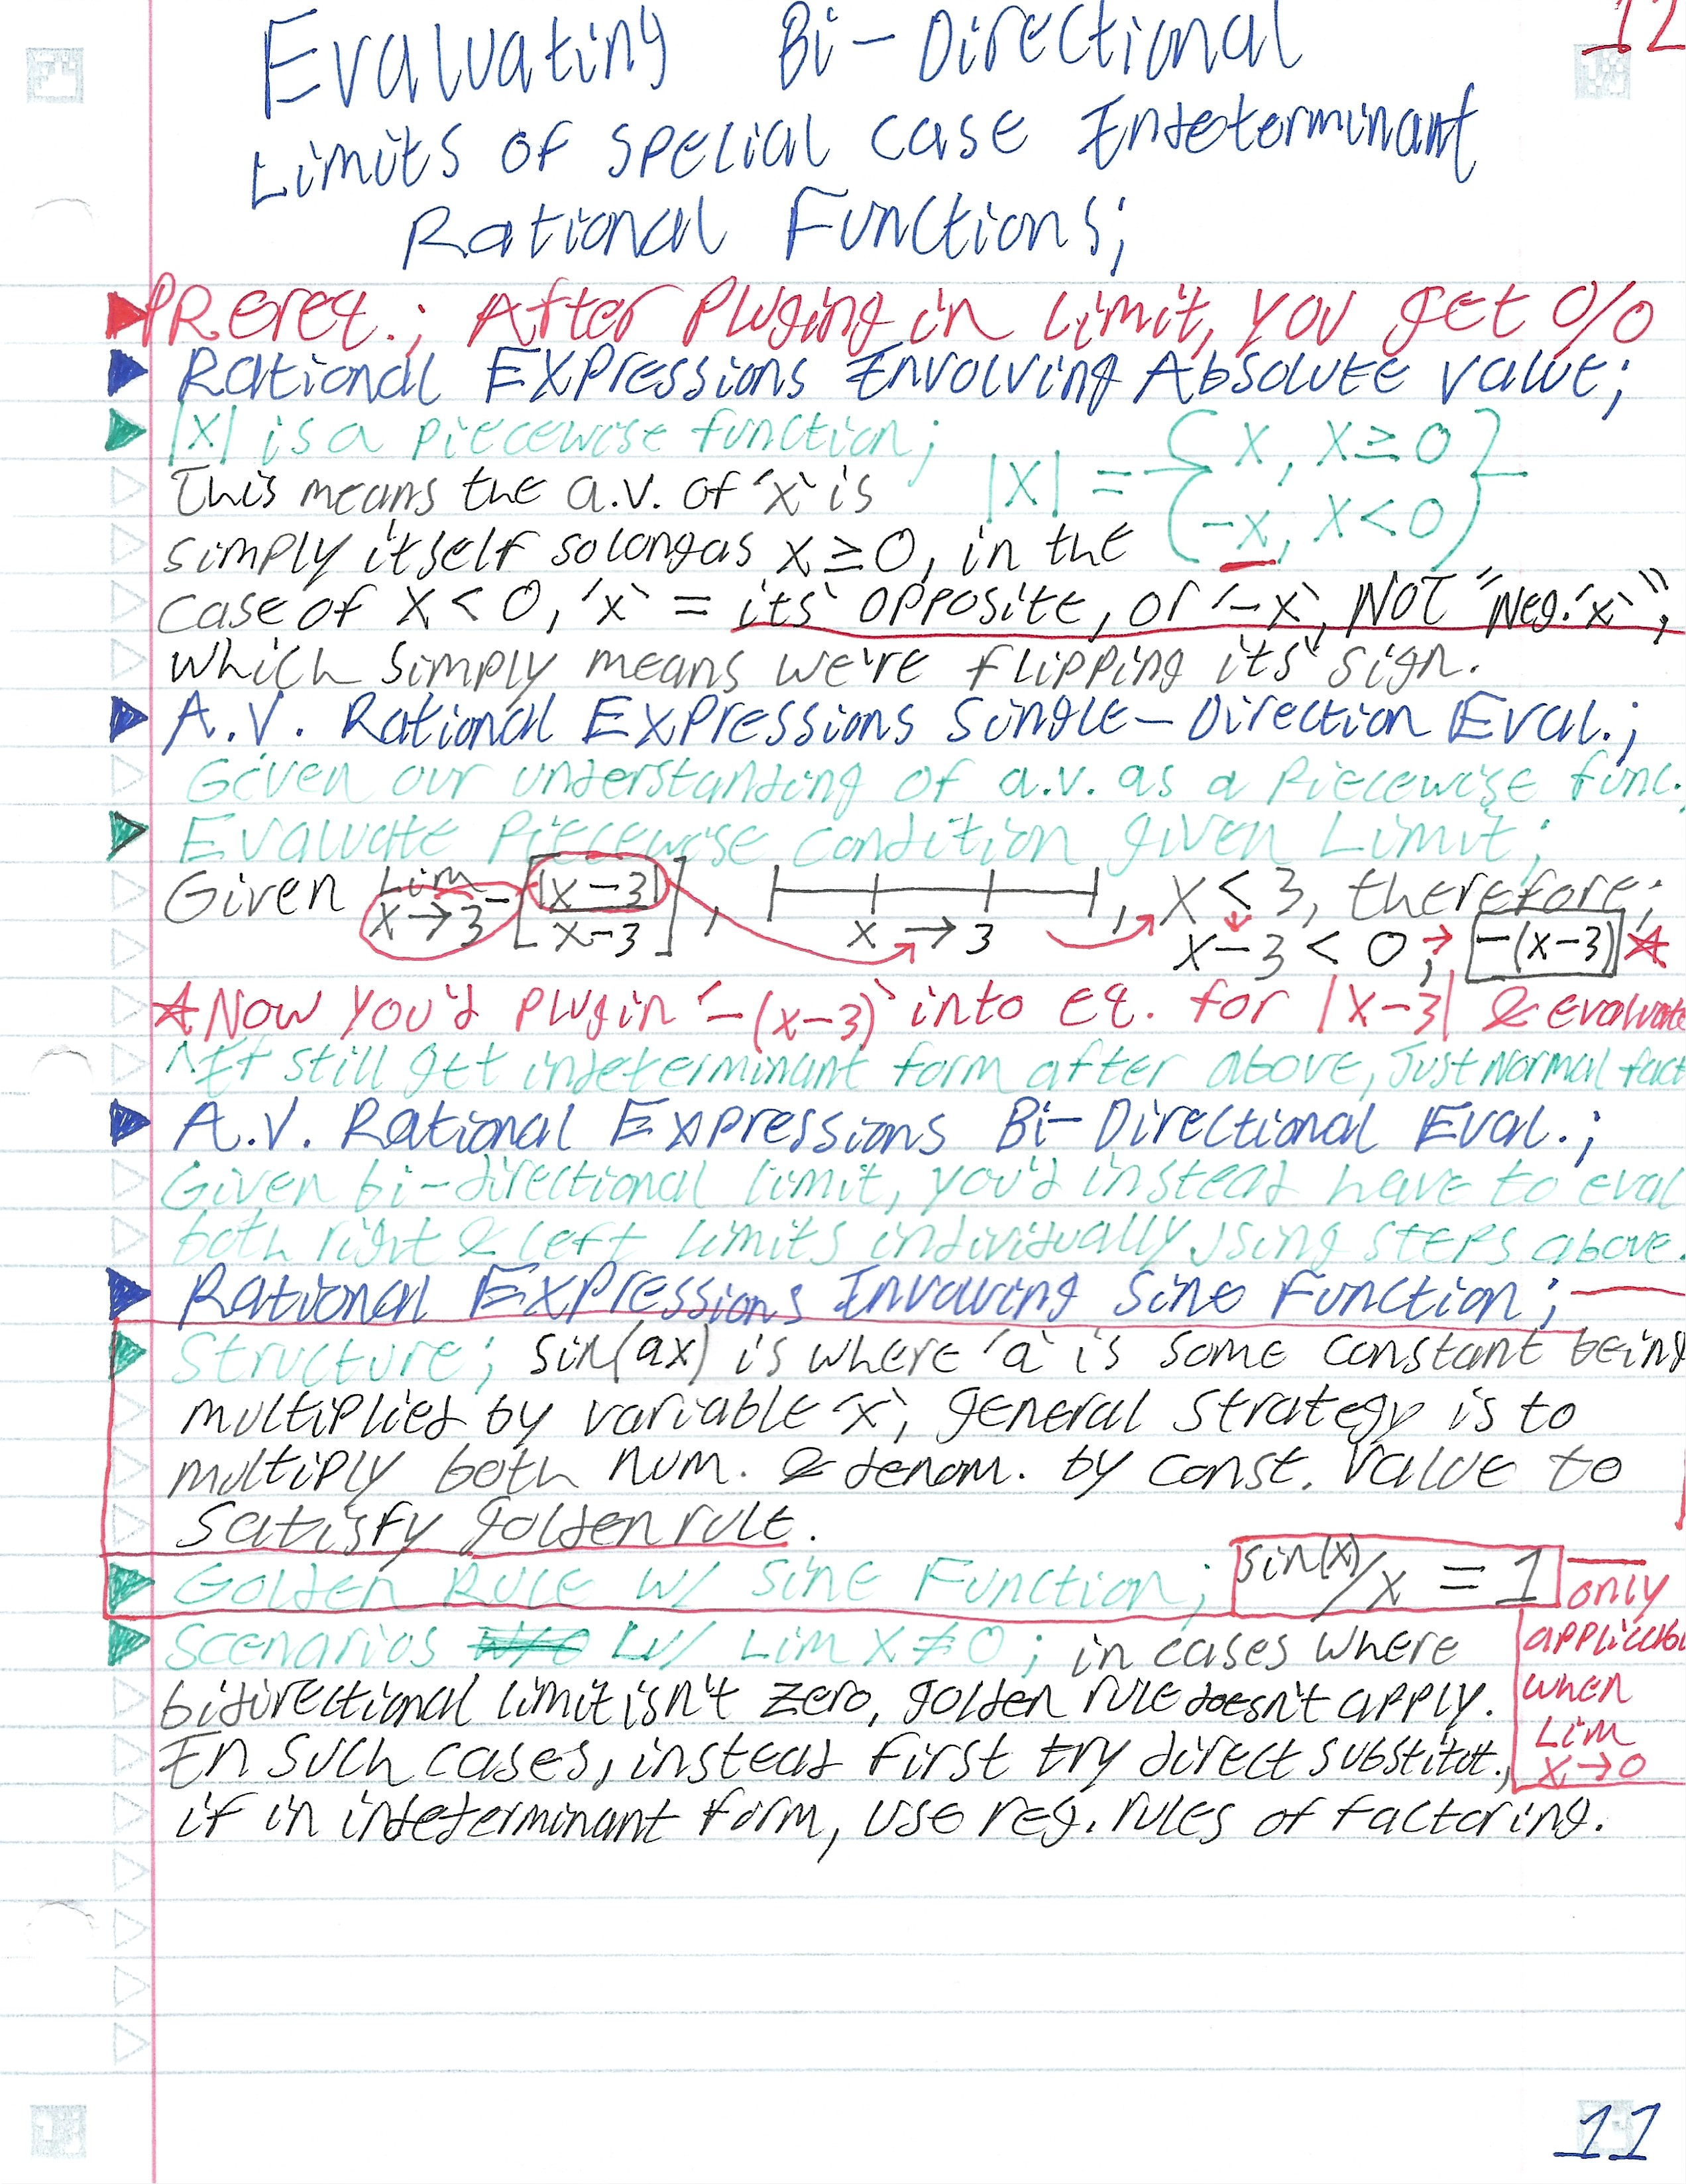 12
Evaluating Bi-Directional
Limits of special case Indeterminant
Rational Functions;
PRereq.; After Pluging in Limit, you get 0/0
Rational Expressions Involving Absolute value;
|x| is a piecewise function; |x| = { x, x ≥ 0
-x, x < 0 }
This means the a.v. of 'x' is
simply itself so long as x ≥ 0, in the
case of x < 0, 'x' = its' opposite, or '-x', NOT "Neg. 'x'",
which simply means we're flipping its' sign.
A.V. Rational Expressions Single-Direction Eval.;
Given our understanding of a.v. as a Piecewise func.,
Evaluate Piecewise condition given Limit;
Given Lim x→3⁻ [|x-3| / x-3], x → 3, x < 3, therefore;
x-3 < 0; → -(x-3) ☆
☆Now you'd plugin '-(x-3)' into eq. for |x-3| & evaluate
^If still get indeterminant form after above, just normal fact
A.V. Rational Expressions Bi-Directional Eval.;
Given bi-directional limit, you'd instead have to eval
both right & left limits individually using steps above.
Rational Expressions Involving Sine Function;
Structure; sin(ax) is where 'a' is some constant being
multiplied by variable 'x', general strategy is to
multiply both num. & denom. by const. value to
satisfy golden rule.
Golden Rule w/ Sine Function; sin(x)/x = 1
only
applicabl
when
Lim
x→0
Scenarios w/ Lim x≠0; in cases where
bidirectional limit isn't zero, golden rule doesn't apply.
In such cases, instead first try direct substitut.,
if in indeterminant form, use reg. rules of factoring.
11